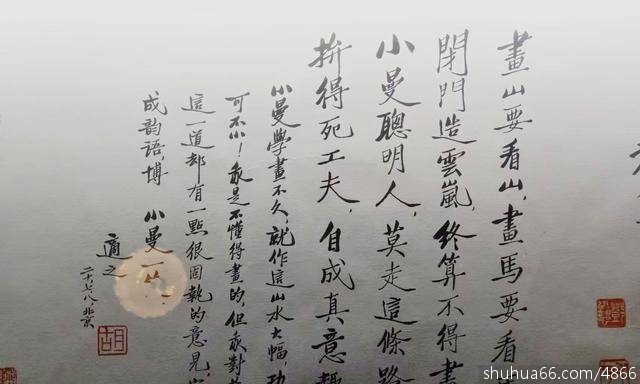 畫山要看山,畫馬要看
閉門造雲嵐,終算不得畫
小曼聰明人,莫走這條路
拚得死工夫,自成真意趣
小曼學畫不久,就作這山水大幅,功
可不小!我是不懂得畫的,但我對
這一道却有一點很固執的意見,
成韵語,博 小曼一
適之
二十,七,八 北京
胡
shuhua66.com/4866